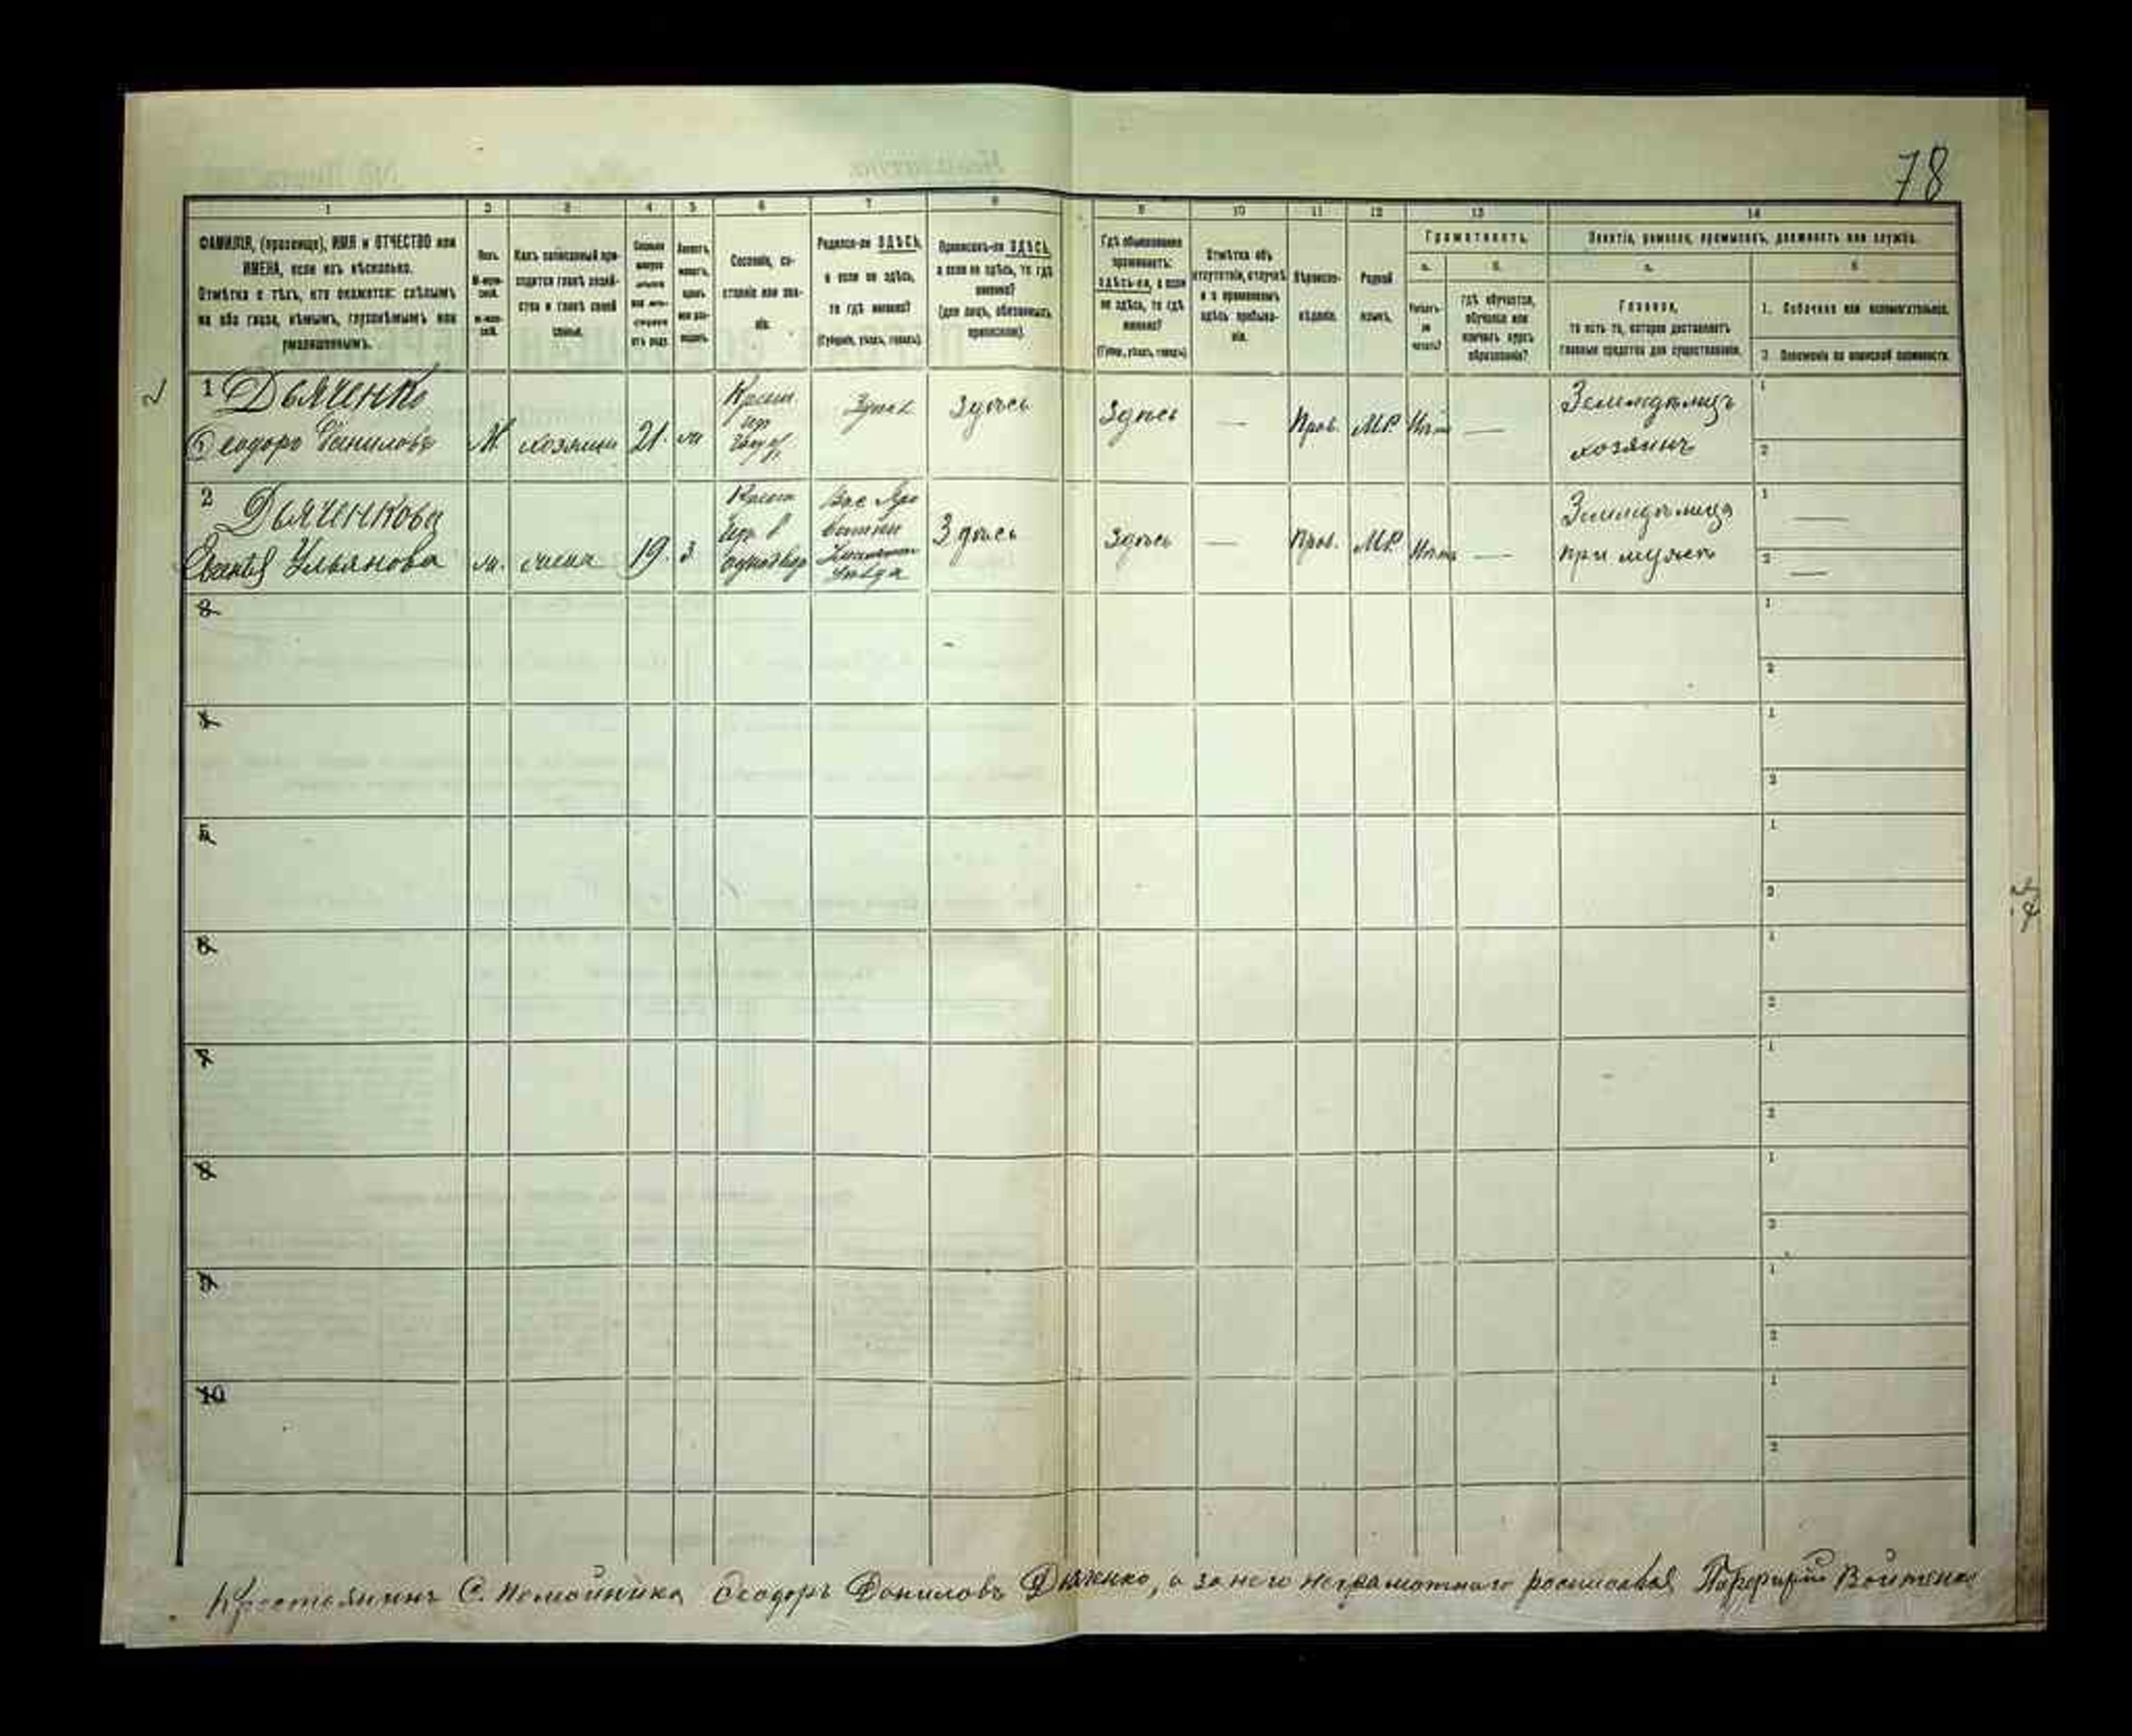 78
1 2 3 4 5 6 7 8 9 10 11 12 13 14
ФАМИЛІЯ, (прозвище), ИМЯ и ОТЧЕСТВО или
ИМЕНА, если ихъ нѣсколько.
Отмѣтка о тѣхъ, кто окажется: слѣпымъ
на оба глаза, нѣмымъ, глухонѣмымъ или
умалишеннымъ.
Полъ.
Какъ записанный при-
ходится главѣ хозяй-
ства и главѣ своей
семьи.
Сословіе, со-
стояніе или зва-
ніе.
Родился-ли ЗДѢСЬ,
а если не здѣсь,
то гдѣ именно?
(Губернія, уѣздъ, городъ).
Приписанъ-ли ЗДѢСЬ,
а если не здѣсь, то гдѣ
именно?
(для лицъ, обязанныхъ
припискою).
Гдѣ обыкновенно
проживаетъ:
ЗДѢСЬ-ЛИ, а если
не здѣсь, то гдѣ
именно?
(Губер., уѣздъ, городъ).
Отмѣтка объ
отсутствіи, отлучкѣ
и о временномъ
здѣсь пребыва-
ніи.
Вѣроиспо-
вѣданіе.
Родной
языкъ.
Грамотность.
а.
б.
Умѣетъ-
ли
читать?
гдѣ обучается,
обучался или
кончилъ курсъ
образованія?
Занятіе, ремесло, промыселъ, должность или служба.
а.
б.
Главное,
то есть то, которое доставляетъ
главныя средства для существованія.
1. Побочное или вспомогательное.
2. Положеніе по воинской повинности.
1 Дьяченко
Ѳеодоръ Даниловъ
М хозяинъ 21. ж
Крест.
Здѣсь Здѣсь Здѣсь — Прав. МР Нѣтъ —
Земледѣлецъ
хозяинъ
1
2
2 Дьяченкова
Ульянова
ж. жена 19. з
Крест
уѣзда
Здѣсь Здѣсь — Прав. МР Нѣтъ —
Земледѣлица
при мужѣ
1 —
2 —
3
1
2
4
1
2
5
1
2
6
1
2
7
1
2
8
1
2
9
1
2
10
1
2
Крестьянинъ С. Помойника Ѳеодоръ Даниловъ Дьяченко, а за него неграмотнаго росписался Порфирій Войтенко